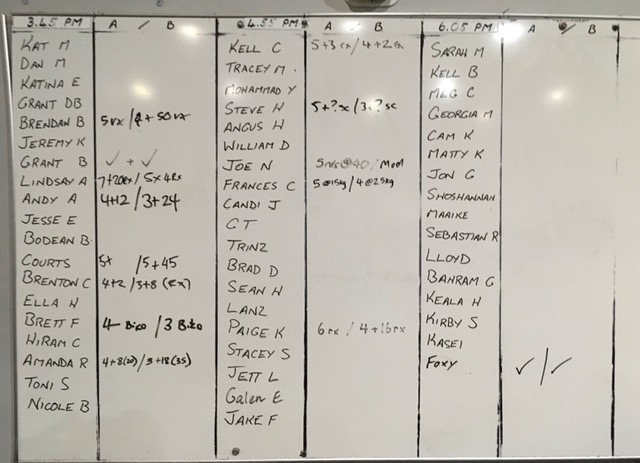 3.45 PM A / B
KAT M
DAN M
KATINA E
GRANT DB
BRENDAN B 5rx / 4 + 50rx
JEREMY K
GRANT B ✓ + ✓
LINDSAY A 7+20rx / 5x 4rx
ANDY A 4+12 / 3+24
JESSE E
BODEAN B.
COURTS /5+45
BRENTON C 4+2 / 3+8
ELLA H
BRETT F 4 - / 3
HIRAM C
AMANDA R 4+8(20) / 3+18(35)
TONI S
NICOLE B
4.55 PM A / B
KELL C 5+3 rx / 4+2
TRACEY M.
MOHAMMAD Y
STEVE H 5+?x / 3+?
ANGUS H
WILLIAM D
JOE N @40 /
FRANCES C 5@15kg / 4@25kg
CANDI J
GT
TRINZ
BRAD D
SEAN H
LANZ
PAIGE K 6rx / 4+16rx
STACEY S
JETT L
Galen E
JAKE F
6.05 PM A / B
SARAH M
KELL B
MEG C
GEORGIA M
CAM K
MATTY K
JON G
SHOSHANNAH
MAAIKE
SEBASTIAN R
LLOYD
BAHRAM G
KEALA H
KIRBY S
KASEI
FOXY ✓/✓